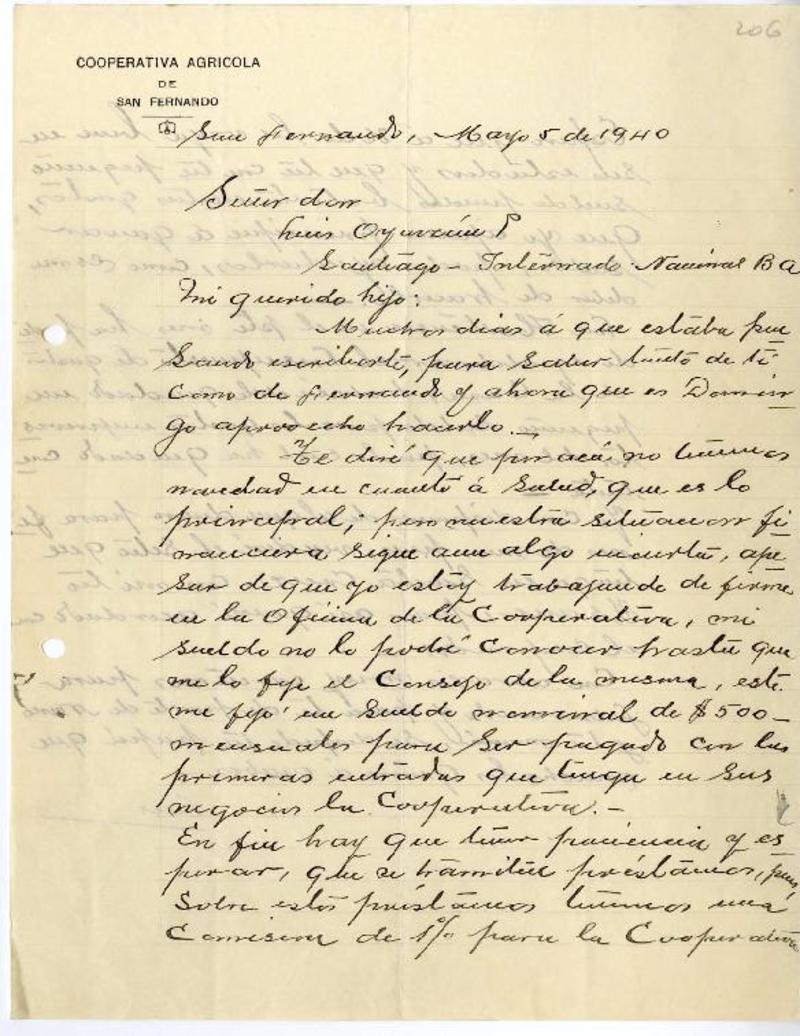 206
COOPERATIVA AGRICOLA
DE
SAN FERNANDO
San Fernando, Mayo 5 de 1940
Señor don
Luis Oyarzún P
Santiago - Internado Nacional B A
Mi querido hijo:
Muchos dias á que estaba pen
sando escribirte, para saber tanto de ti
como de Fernando y ahora que es Domin
go aprovecho hacerlo.—
Te diré que por acá no tenemos
novedad en cuanto á salud, que es lo
principal; pero nuestra situacion fi
nanciera sigue aun algo incierta, ape
sar de que yo estoy trabajando de firme
en la Oficina de la Cooperativa, mi
sueldo no lo podré conocer hasta que
me lo fije el Consejo de la misma, este
me fijó un sueldo nominal de $500-
mensuales para ser pagado con las
primeras entradas que tenga en sus
negocios la Cooperativa.-
En fin hay que tener paciencia y es
perar, que se tramiten préstamos, pues
sobre estos préstamos tenemos una
Comision de 1% para la Cooperativa